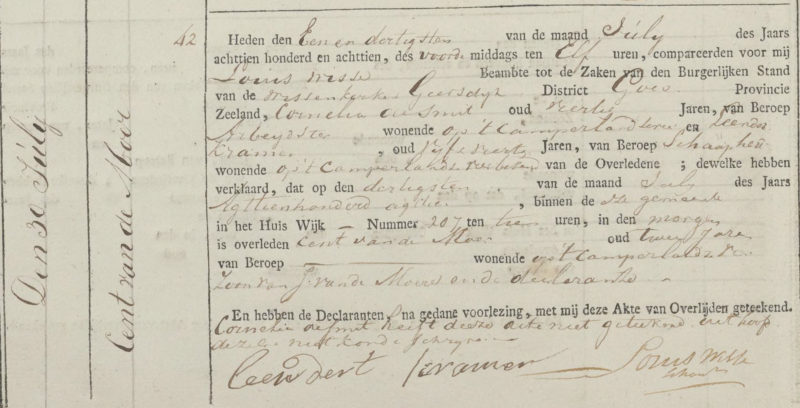 42
Heden den Een en dertigsten van de maand Júly des Jaars
achttien honderd en achttien, des voorde middags ten Elf uren, compareerden voor mij
Louis Wisse Beambte tot de Zaken van den Burgerlijken Stand
van de Wissenkerke Geersdijk District Goes Provincie
Zeeland, Cornelia de Smit oud veertig Jaren, van Beroep
Arbeydster wonende op 't Camperland en Leendert
Kramer, oud vyf en veertig Jaren, van Beroep
wonende op 't Camperland van de Overledene; dewelke hebben
verklaard, dat op den dertigsten van de maand July des Jaars
Agttienhonderd agtien, binnen de gemeente
in het Huis Wijk — Nummer 207 ten tien uren, in den morgen
is overleden Cent van de Moer oud twee Jaren
van Beroep — wonende op 't Camperland
Zoon van J. van de Moere en de declarante
En hebben de Declaranten, na gedane voorlezing, met mij deze Akte van Overlijden geteekend.
Cornelia de Smit heeft deeze acte niet geteekend uit hoofde
dezelve niet konde schryven
Leendert Kramer Louis Wisse
Schout
Den 30 Júly
Cent van de Moer